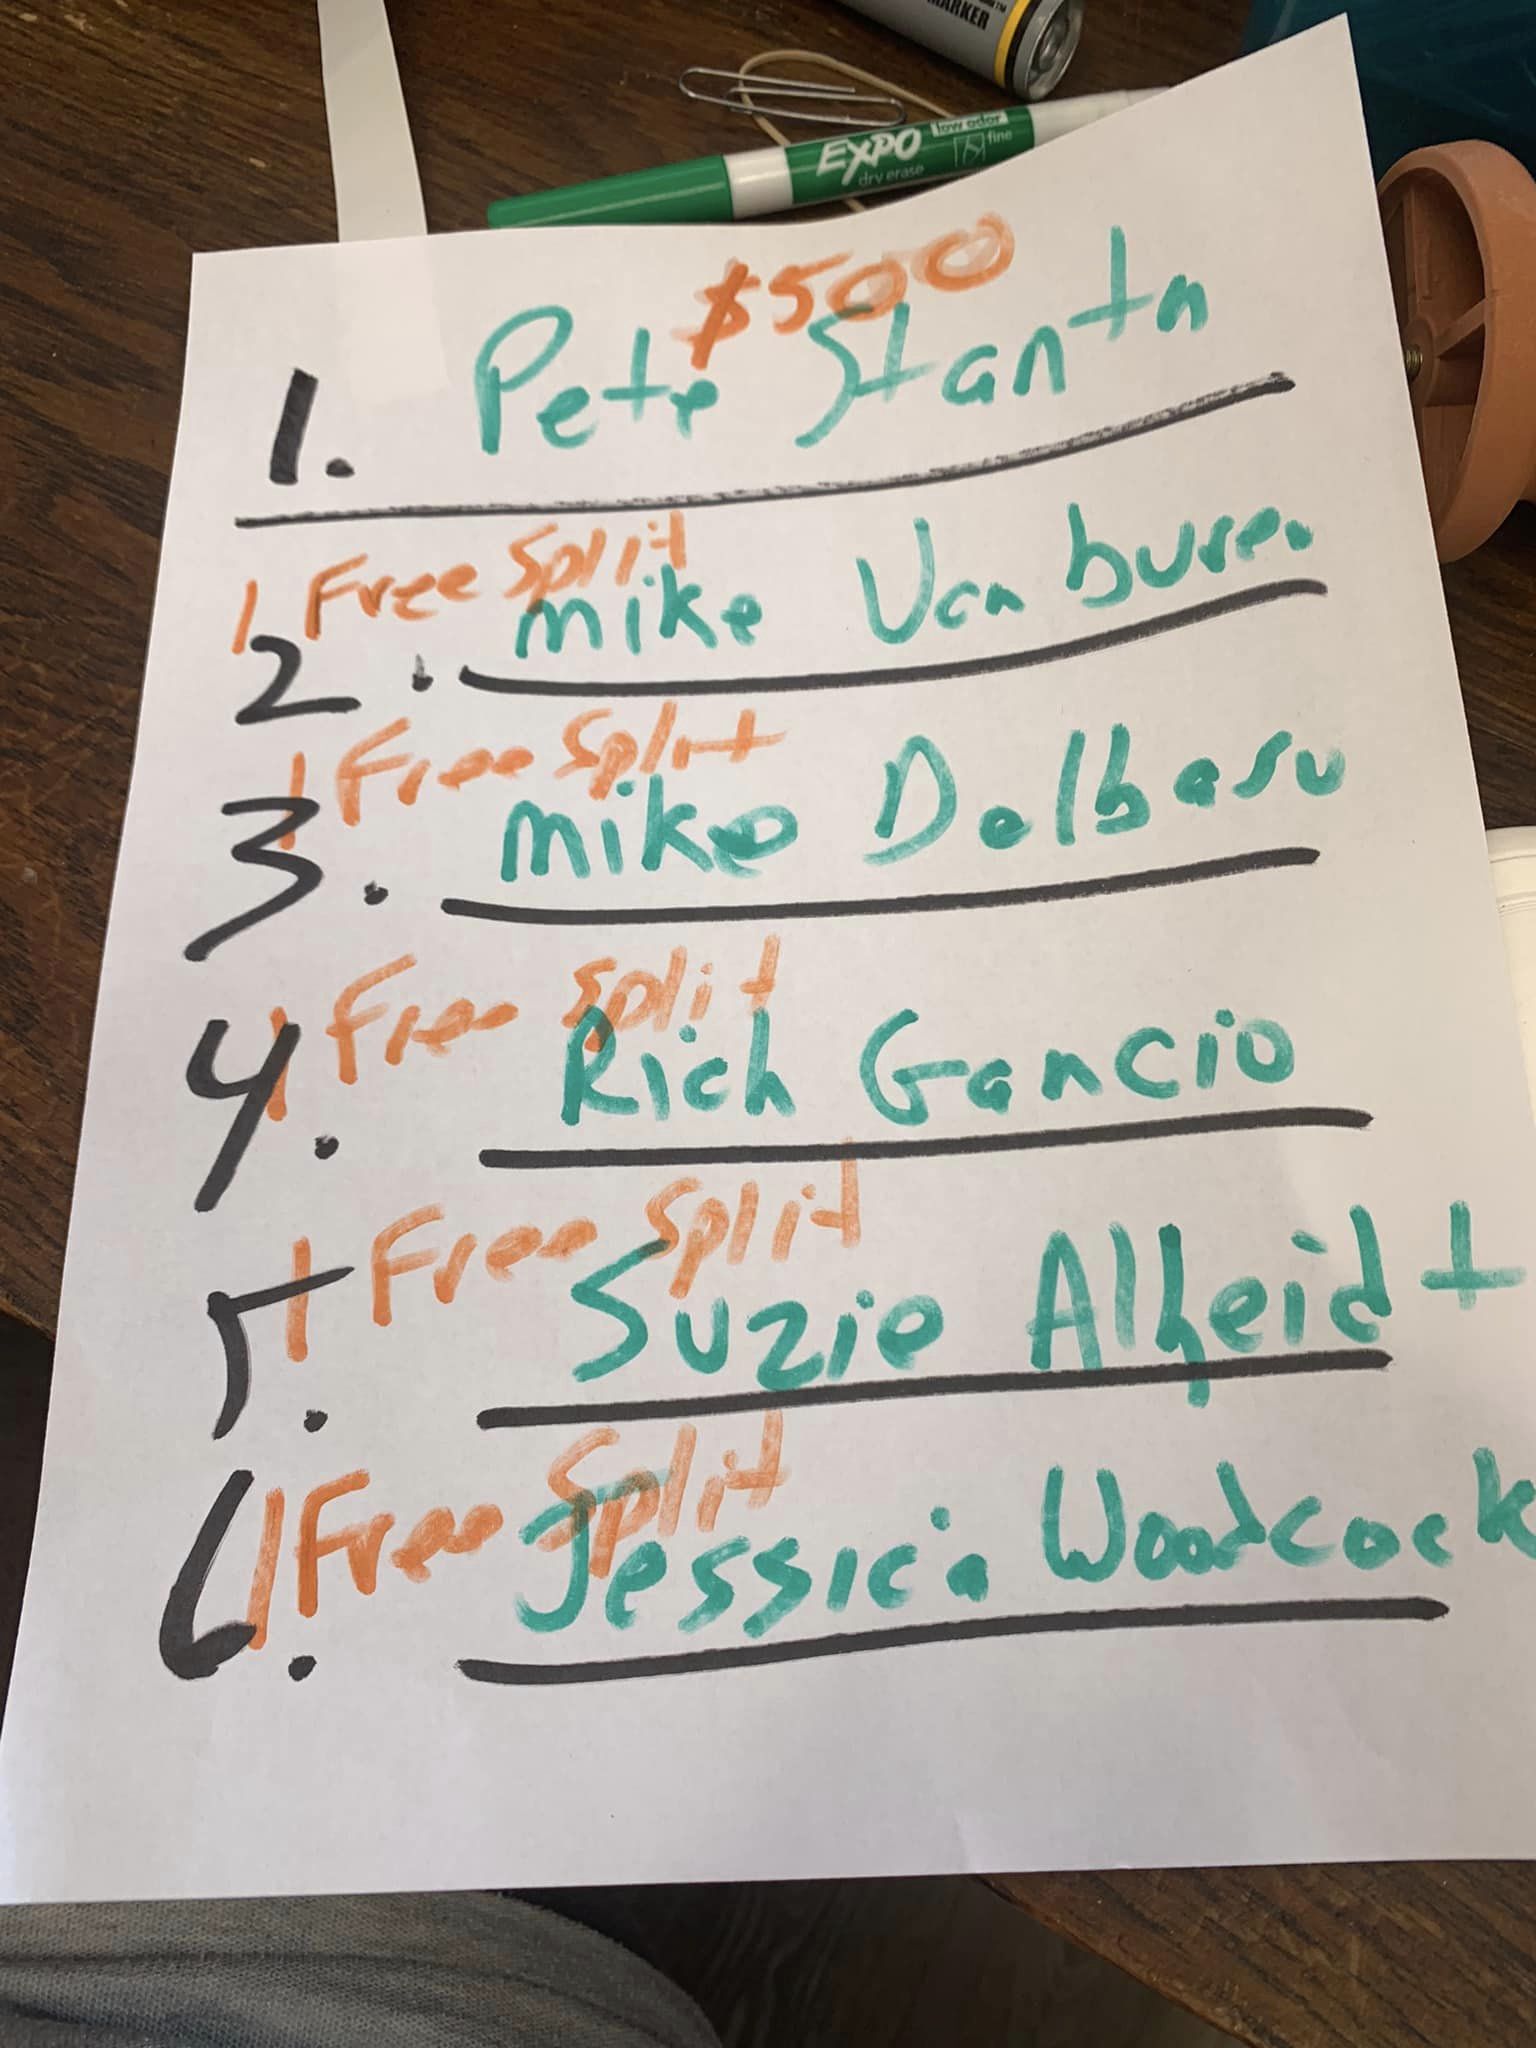 MARKER
EXPO low odor
dry erase fine
$500
1. Pete Stantn
1 Free Split
2. Mike Vanburen
1 Free Split
3. Mike Dalbasu
1 Free Split
4. Rich Gancio
1 Free Split
5. Suzie Alheidt
1 Free Split
6. Jessica Woodcock